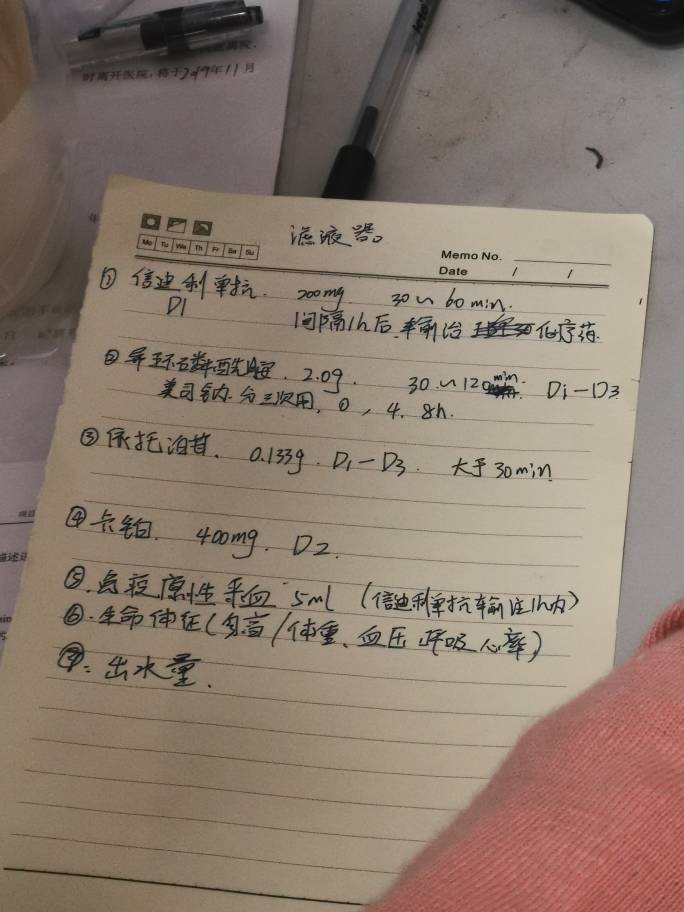 时离开医院，将于2019年11月
年
滤液器。
Mo Tu We Th Fr Sa Su
Memo No.
Date / /
① 信迪利单抗. 200mg 30~60min.
D1 间隔1h后.输前治 化疗药.
② 异环磷酰胺. 2.0g. 30~120min. D1-D3
美司钠.分三次用, 0, 4. 8h.
③ 依托泊苷. 0.133g. D1-D3. 大于30min
④ 卡铂. 400mg. D2.
⑤. 免疫原性采血 5ml (信迪利单抗输注1h内)
⑥. 生命体征(身高/体重. 血压 呼吸 心率)
⑦. 出水量.